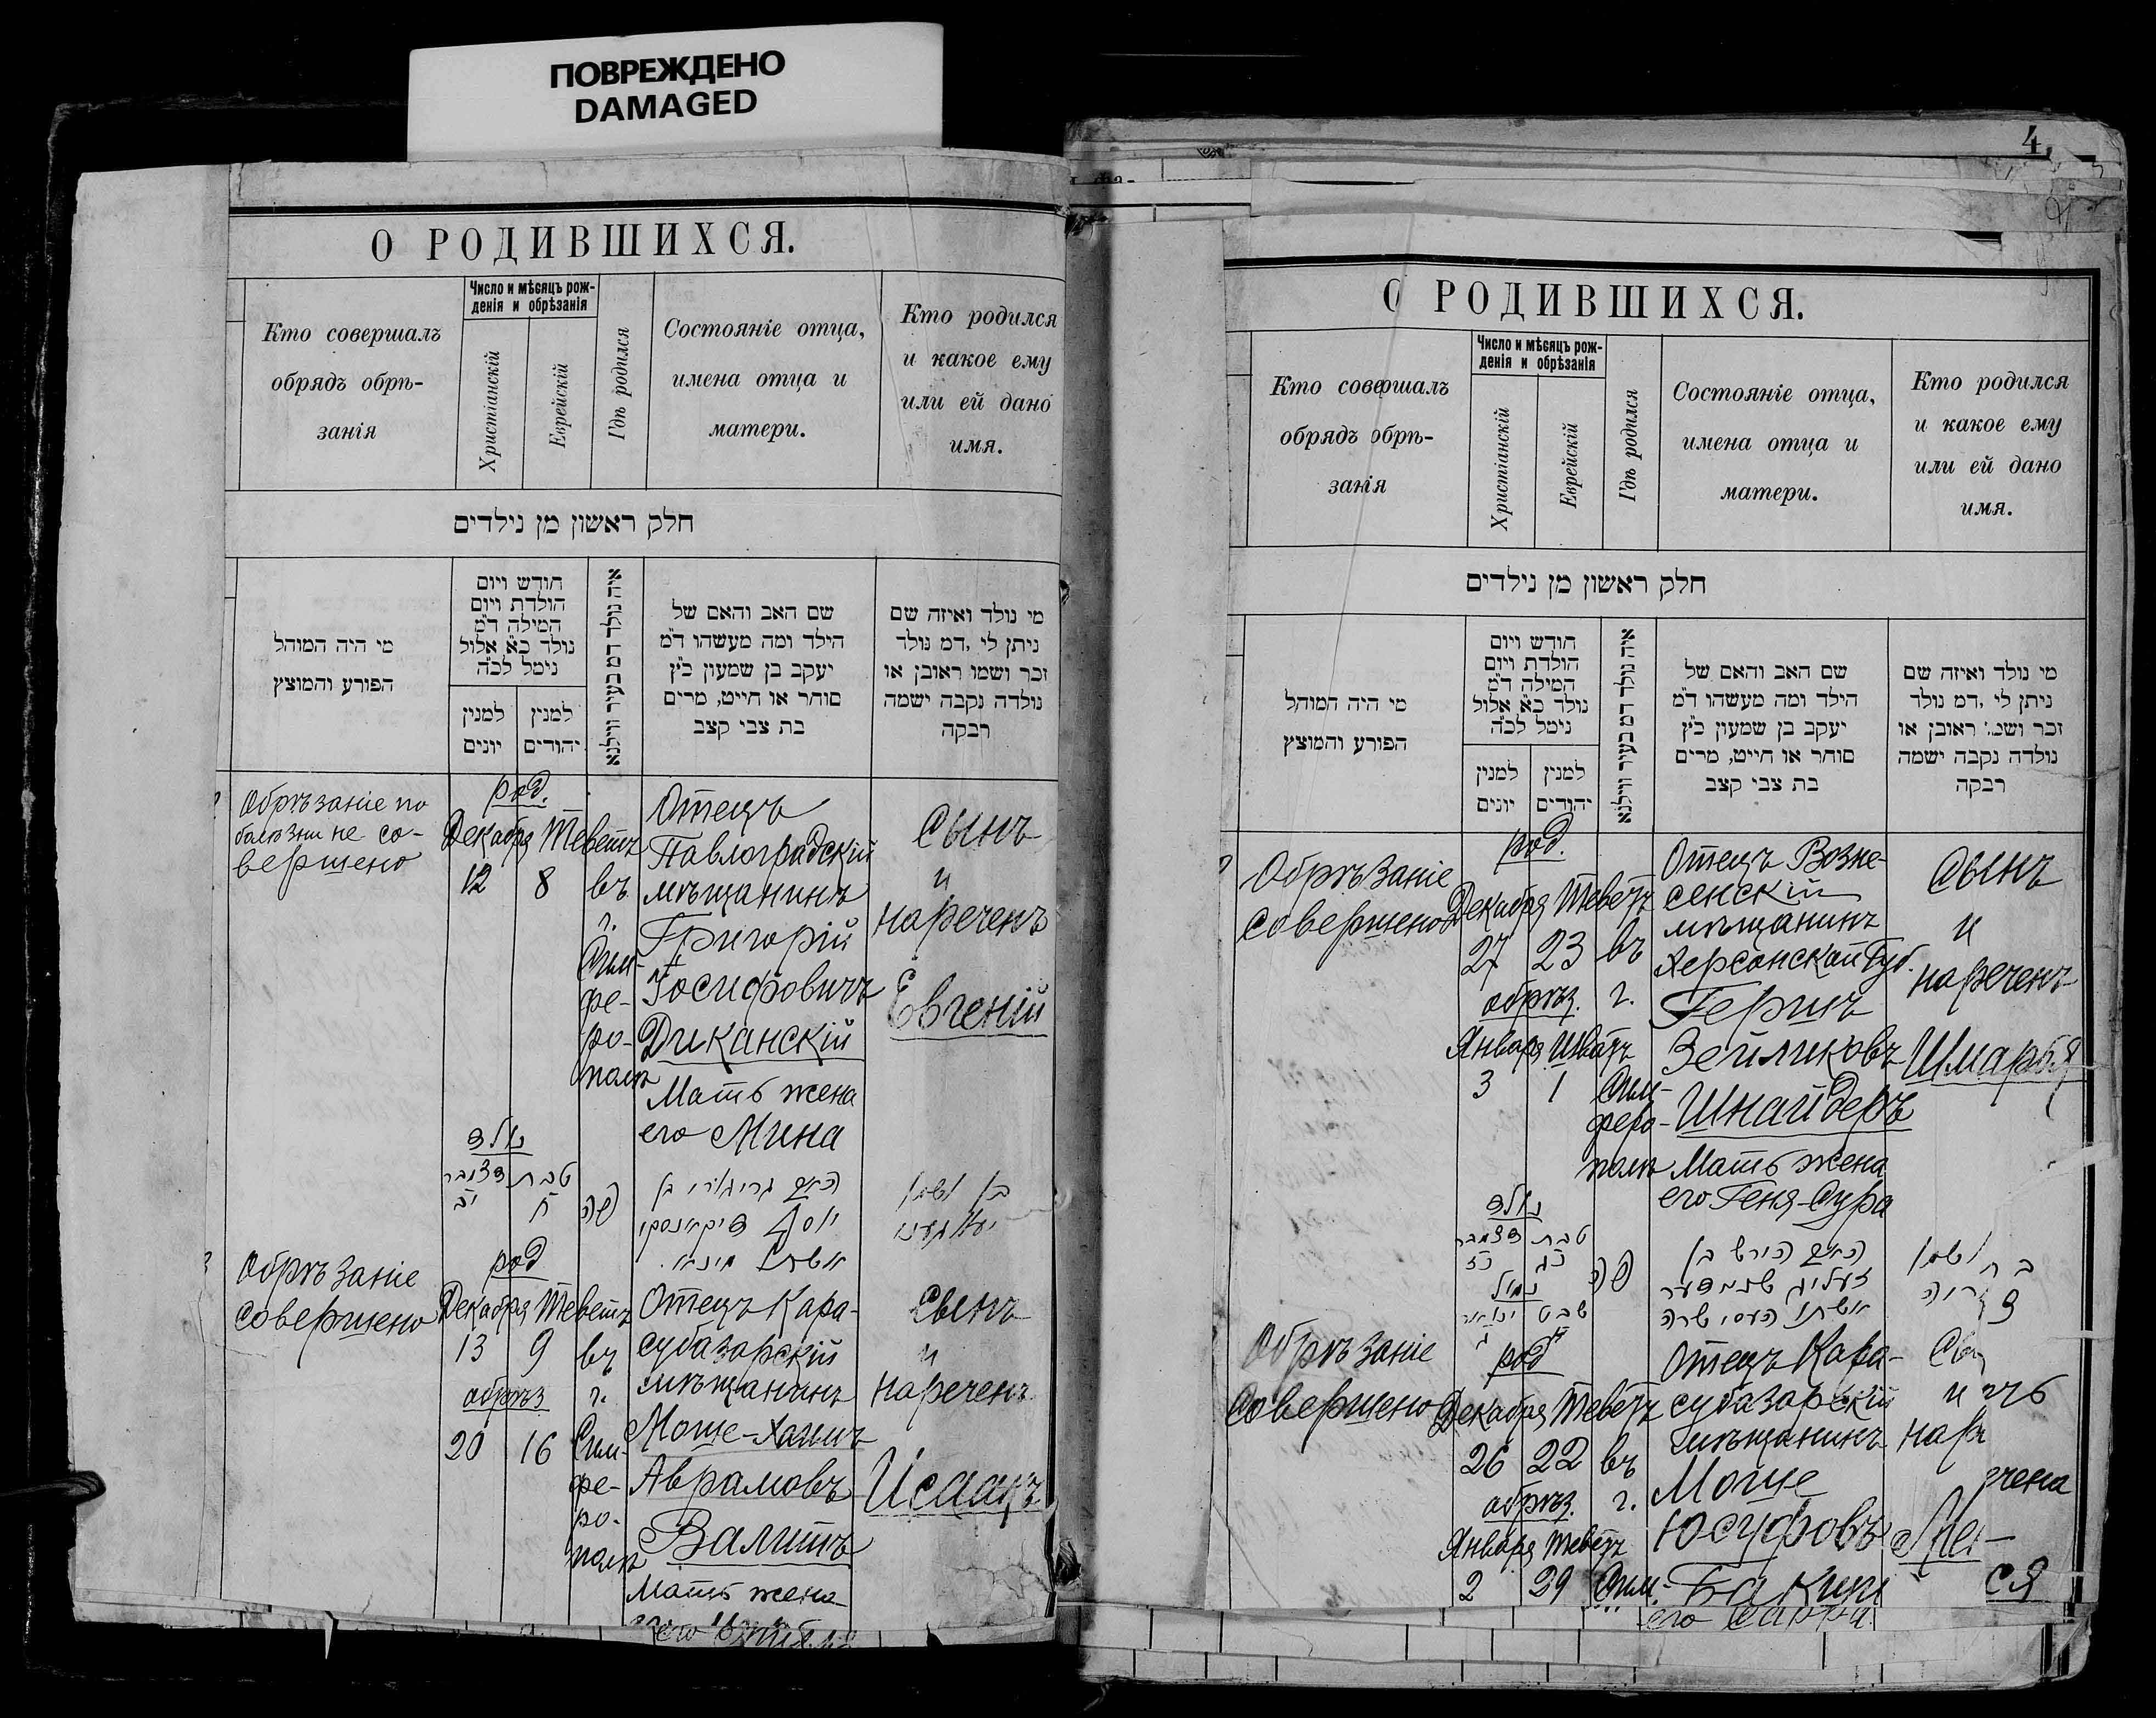 ПОВРЕЖДЕНО
DAMAGED
О РОДИВШИХСЯ.
Кто совершалъ
обрядъ обрѣ-
занія
Число и мѣсяцъ рож-
денія и обрѣзанія
Христіанскій
Еврейскій
Гдѣ родился
Состояніе отца,
имена отца и
матери.
Кто родился
и какое ему
или ей дано
имя.
חלק ראשון מן נילדים
מי היה המוהל
הפורע והמוצץ
חודש ויום
הולדת ויום
המילה ד״מ
נולד כ״א אלול
נימל לכ״ה
למנין
יונים
למנין
יהודים
איה נולד דמ בעיר ווילנא
שם האב והאם של
הילד ומה מעשהו ד״מ
יעקב בן שמעון כ״ץ
סוחר או חייט, מרים
בת צבי קצב
מי נולד ואיזה שם
ניתן לי, דמ נולד
זכר ושמו ראובן או
נולדה נקבה ישמה
רבקה
Обрѣзаніе по
болѣзни не со-
вершено
род.
Декабря Теветъ
12 8
въ
г.
Сим-
фе-
ро-
полѣ
Отецъ
Павлоградскій
мѣщанинъ
Григорій
Іосифовичъ
Диканскій
Мать жена
его Мина
Сынъ
и
нареченъ
Евгеній
נולד
דצמבר טבת
יב ח
פה
האב גריגורי בן
יוסף דיקאנסקי
אשתו מינא.
בן ושמו
Обрѣзаніе
совершено
род
Декабря Теветъ
13 9
обрѣз
20 16
въ
г.
Сим-
фе-
ро-
полѣ
Отецъ Кара-
субазарскій
мѣщанинъ
Моше-Хаимъ
Аврамовъ
Валитъ
Мать жена
его
Сынъ
и
нареченъ
Исаакъ
4
О РОДИВШИХСЯ.
Кто совершалъ
обрядъ обрѣ-
занія
Число и мѣсяцъ рож-
денія и обрѣзанія
Христіанскій
Еврейскій
Гдѣ родился
Состояніе отца,
имена отца и
матери.
Кто родился
и какое ему
или ей дано
имя.
חלק ראשון מן נילדים
מי היה המוהל
הפורע והמוצץ
חודש ויום
הולדת ויום
המילה ד״מ
נולד כ״א אלול
נימל לכ״ה
למנין
יונים
למנין
יהודים
איה נולד דמ בעיר ווילנא
שם האב והאם של
הילד ומה מעשהו ד״מ
יעקב בן שמעון כ״ץ
סוחר או חייט, מרים
בת צבי קצב
מי נולד ואיזה שם
ניתן לי, דמ נולד
זכר ושמ׳ ראובן או
נולדה נקבה ישמה
רבקה
Обрѣзаніе
совершено
род.
Декабря Теветъ
27 23
обрѣз.
Января Шватъ
3 1
въ
г.
Сим-
феро-
полѣ
Отецъ Возне-
сенскій
мѣщанинъ
Херсонской Губ.
Гершъ
Зейликовъ
Шнайдеръ
Мать жена
его Геня-Сура
Сынъ
и
нареченъ
Шмарья
נולד
דצמבר טבת
כז כג
נמול
ינואר שבט
ג א
פה
האב הירש בן
זעליג שניידער
אשתו העניא שרה
ושמו
Обрѣзаніе
Совершено
род
Декабря Теветъ
26 22
обрѣз.
Января Теветъ
2 29
въ
г.
Сим-
Отецъ Кара-
субазарскій
мѣщанинъ
Моше
Юсуфовъ
его
и